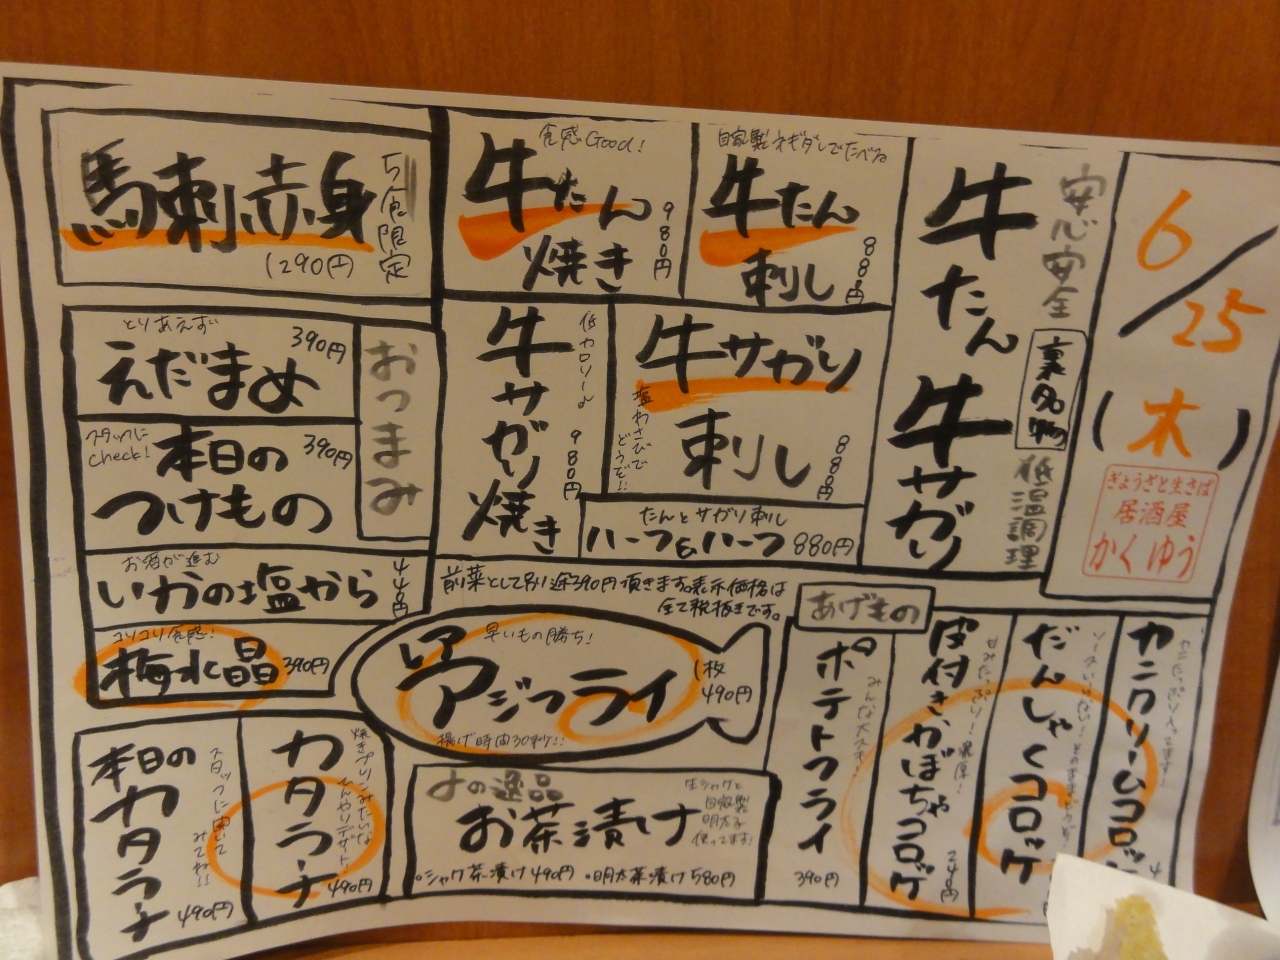 6/25
(木)
ぎょうざと生さば
居酒屋
かくゆう
安心安全
裏名物
低温調理
牛たん
牛サガリ
自家製ネギダレでたべる
牛たん
刺し
880円
食感Good!
牛たん
焼き
980円
牛サガリ
刺し
塩わさびで
どうぞ!!
880円
低カロリーよ
牛サガリ焼き
980円
たんとサガリ刺し
ハーフ&ハーフ 880円
馬刺赤身
5食限定
1290円
おつまみ
とりあえず
えだまめ
390円
スタッフに
check!
本日の
つけもの
390円
お酒が進む
いかの塩から
440円
コリコリ食感!
梅水晶
390円
前菜として別途390円頂きます。表示価格は
全て税抜きです。
早いもの勝ち!
レア
アジフライ
1枚
490円
揚げ時間30秒!!
あげもの
カニクリームコロッ
だんしゃくコロッケ
皮付きかぼちゃコロッケ
甘みたっぷり!濃厚!
240円
ポテトフライ
みんな大スキ!
390円
〆の逸品
お茶漬け
生シャケと
自家製
明太子
使ってます!
・シャケ茶漬け490円 ・明太茶漬け580円
カタラーナ
焼きプリンみたいな
ひんやりデザート!
490円
本日の
カタラーナ
スタッフに聞いて
みてね!!
490円